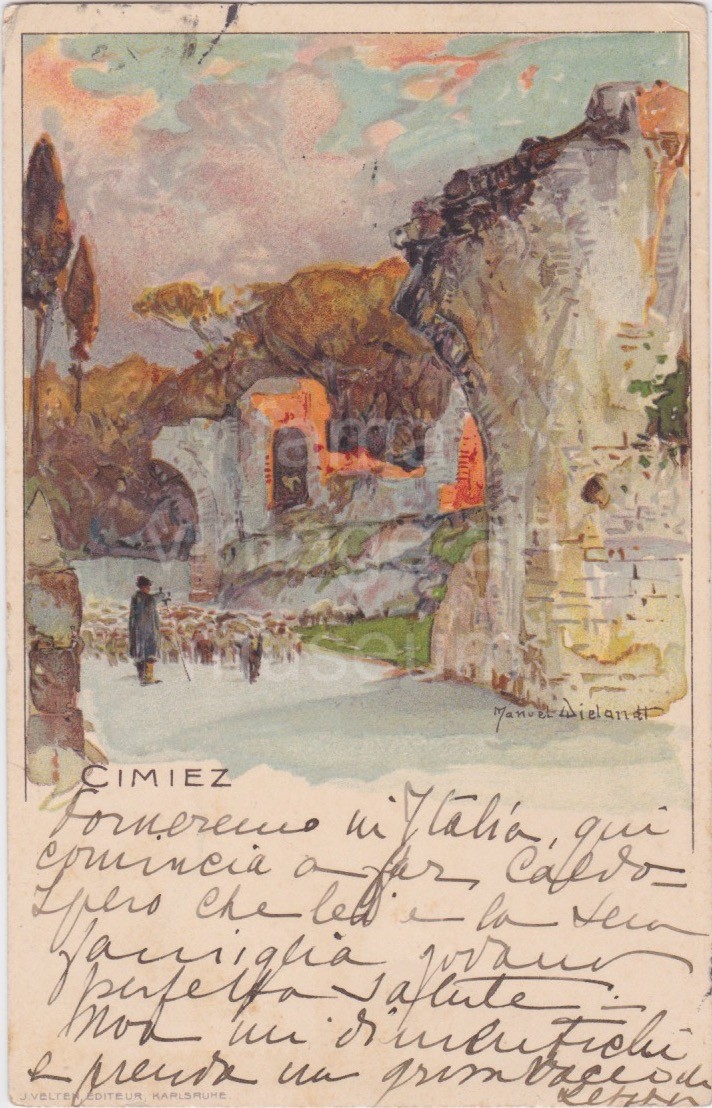 Manuel Wielandt
CIMIEZ
Torneremo in Italia, qui
comincia a far caldo_
Spero che lei e la sua
famiglia godano
perfetta salute.
Non mi dimentichi
e prenda un grosso bacio da
J. VELTEN EDITEUR, KARLSRUHE
vintage
museum